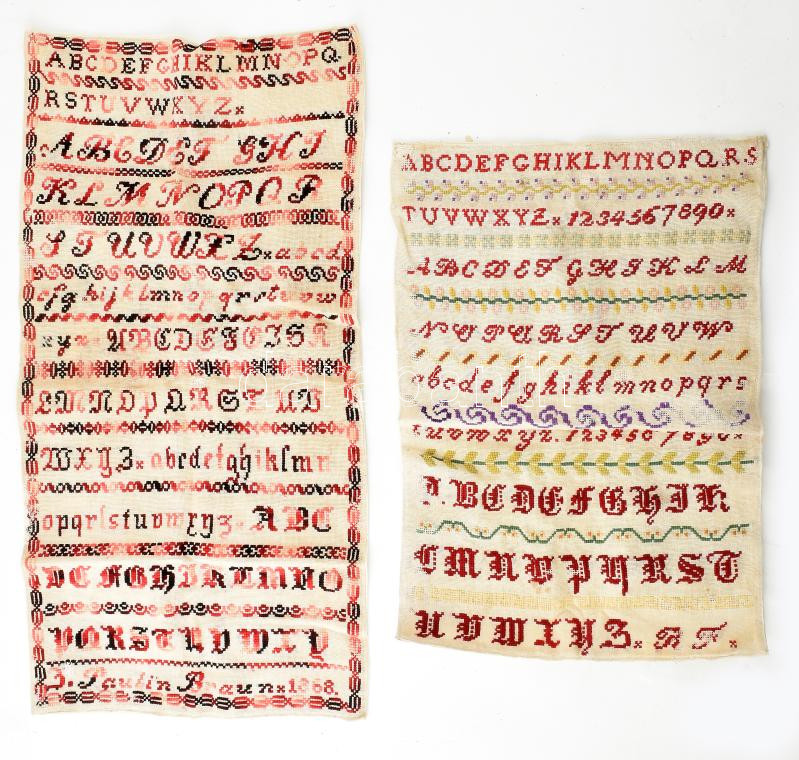 ABCDEFGHIKLMNOPQ
RSTUVWXYZ×
ABCDEF GHI
KLMNOPQR
STUVWXZ×abcd
efghijklmnopqrstuvw
xyz×ABCDEFGISK
LMNOPQRSTUV
WXYZ×abcdefghiklmn
opqrſstuvwxyz.ABC
DEFGHIKLMNO
PQRSTUVWXY
Z.Paulin Braun×1868.
ABCDEFGHIKLMNOPQRS
TUVWXYZ×1234567890×
ABCDEFGHIKLM
NOPQRSTUVW
abcdefghiklmnopqrs
tuvwxyz.1234567890×
A.BCDEFGHIK
LMNOPQRST
UVWXYZ× ×